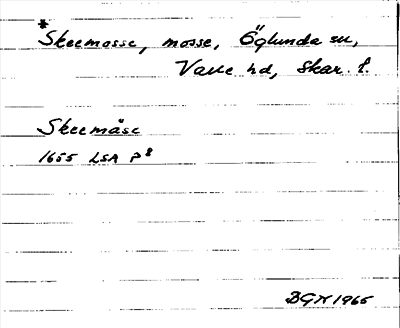 *Skeemosse, mosse, Öglunda sn,
Valle hd, Skar. l.
Skeemåse
1655 LSA P⁸
BGH 1965